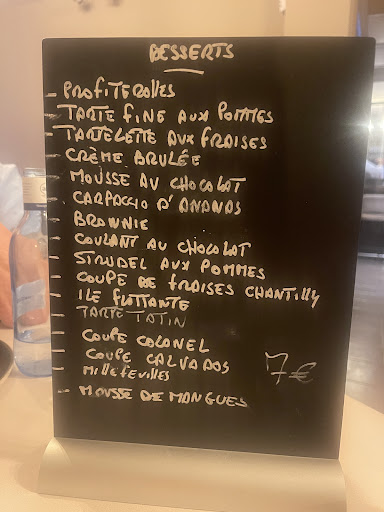 DESSERTS
- PROFITEROLLES
- TARTE FINE AUX POMMES
- TARTELETTE AUX FRAISES
- CRÈME BRULÉE
- MOUSSE AU CHOCOLAT
- CARPACCIO D'ANANAS
- BROWNIE
- COULANT AU CHOCOLAT
- STRUDEL AUX POMMES
- COUPE DE FRAISES CHANTILLY
- ILE FLOTTANTE
- TARTE TATIN
- COUPE COLONEL
- COUPE CALVADOS
- MILLEFEUILLES
7€
- MOUSSE DE MANGUES